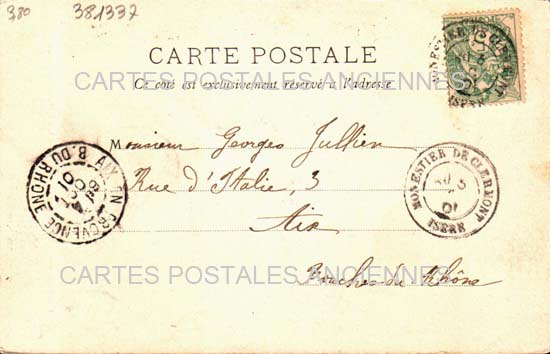 380
381337
CARTE POSTALE
Ce côté est exclusivement réservé à l'adresse
CARTES POSTALES ANCIENNES
MONESTIER DE CLERMONT
ISERE
Monsieur Georges Jullien
Rue d'Italie, 3
Aix
Bouches-du-Rhône
AIX EN PROVENCE B. DU RHONE
10
MONESTIER DE CLERMONT
5
01
ISERE
CARTES POSTALES ANCIENNES